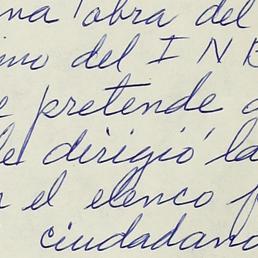 obra del
del I N
pretende
dirigió la
el elenco
ciudadano